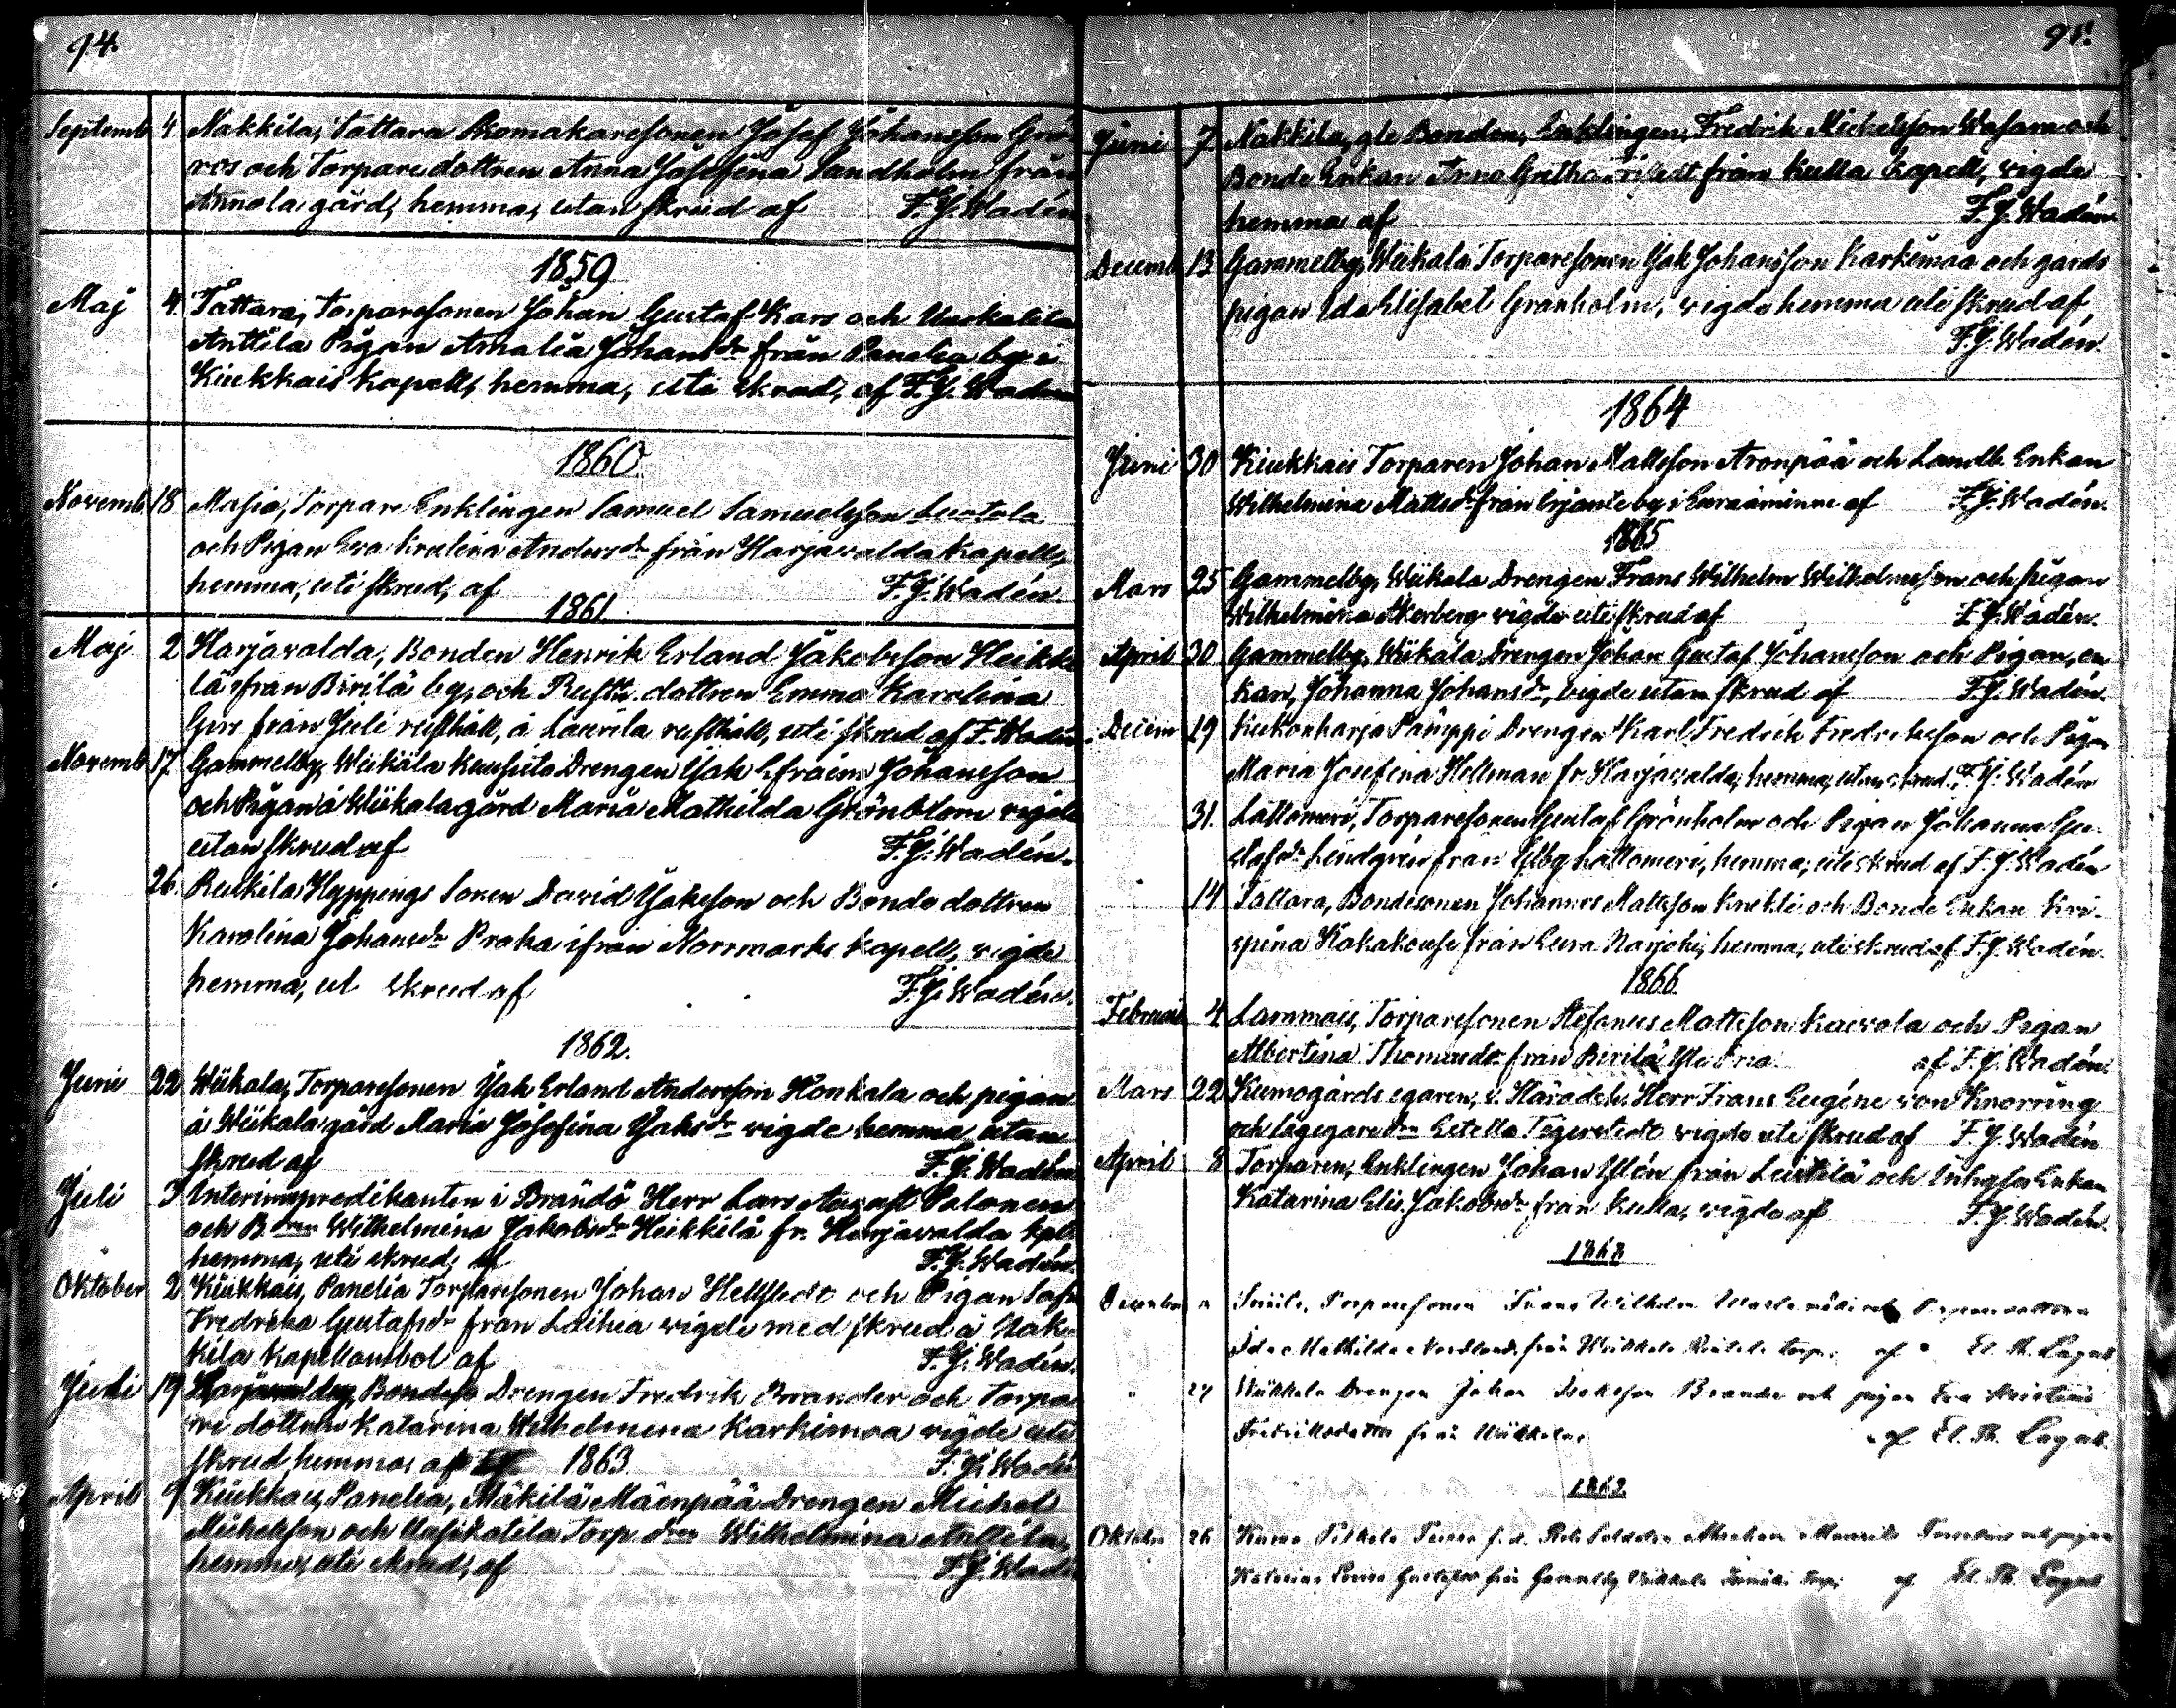 94.
Septemb 4 Nakkila, Tattara Skomakaresonen Josef Johansson Grö-
ros och Torpare dottren Anna Josefina Sandholm från
Annola gård, hemma, utan skrud af F. J. Wadén
1859
Maj 4. Tattara, Torparesonen Johan Gustaf Kars och
Anttila Pigan Amalia Johansdr från Panelia by i
Kiukkais Kapell, hemma, uti skrud, af F. J. Wadén
1860
Novemb. 18 Masia, Torpare Enklingen Samuel Samuelsson Luotola
och Pigan Eva Krolina Andersdr från Harjavalda Kapell,
hemma, uti skrud, af F. J. Wadén.
1861.
Maj 2 Harjavalda, Bonden Henrik Erland Jakobsson Heikki
lä från Pirilä by, och Rusth. dottren Emma Karolina
från Juli rusthåll, å Laurila rusthåll, uti skrud af F. Wadén
Novemb. 17. Gammelby, Wiikala Drengen Isak Efraim Johansson
och Pigan å Wiikala gård Maria Mathilda Grönblom vigde
utan skrud af F. J. Wadén.
26. Ruskila Hyppings Sonen David Isaksson och Bonde dottren
Karolina Johansdr Praka ifrån Norrmarks kapell, vigde
hemma, ut skrud af F. J. Wadén.
1862.
Juni 22 Wiikala, Torparesonen Isak Erland Andersson Honkala och pigan
å Wiikala gård Maria Josefina Isaksdr vigde hemma utan
skrud af F. J. Wadén
Juli 3 Interimspredikanten i Brändö Herr Lars August Salonen
och B.dren Wilhelmina Jakobsdr Heikkilä fr. Harjavalda kpll
hemma, uti skrud, af F. J. Wadén.
Oktober 2 Kiukkais, Panelia Torparesonen Johan Hellstedt och Pigan Sofia
Fredrika Gustafsdr från Laihia vigde med skrud å Nak-
kila Kapellansbol af F. J. Wadén.
Juli 19 Harjavalda, Drengen Fredrik Brander och Torpa
re dottren Katarina Wilhelmina Karkimaa vigde uti
skrud, hemma, af F. J. Wadén
1863.
April 9 Kiukkais, Panelia, Mäkilä Mäenpää Drengen Michel
Michelsson och Torp. dren Wilhelmina Anttila,
hemma, uti skrud, af F. J. Wadé
95.
Juni 7 Nakkila, gle Bonden, Enklingen, Fredrik Michelsson Wasara och
Bonde Enkan Anna Gretha från Kulla Kapell, vigde
hemma af F. J. Wadén
Decemb 13 Gammelby, Wiikala Torparesonen Isak Johansson Karkimaa och gårds
pigan Ida Elisabet Granholm, vigde hemma uti skrud af
F. J. Wadén.
1864
Juni 30 Kiukkais Torparen Johan Mattsson Aronpää och Landb. Enkan
Wilhelmina Mattsdr från by i Euraåminne af F. J. Wadén.
1865
Mars 25 Gammelby, Wiikala Drengen Frans Wilhelm Wilhelmsson och pigan
Wilhelmina Åkerberg vigde uti skrud af F. J. Wadén.
April 30 Gammelby, Wiikala Drengen Johan Gustaf Johansson och Pigan, en
kan, Johanna Johansdr, vigde utan skrud af F. J. Wadén.
Decem 19 Kukonharja Drengen Karl Fredrik Fredriksson och Pigan
Maria Josefina Hellman fr. Harjavalda, hemma, utan skrud, F. J. Wadén
31. Lattomeri, Torparesonen Gustaf Grönholm och Pigan Johanna Gu-
stafsdr Lindgren från Ulfsby Lattomeri, hemma, uti skrud af F. J. Wadén
" 14 Tattara, Bondesonen Johannes Mattsson Knekti och Bonde Enkan Kri-
spina från Eura Narjoki, hemma, uti skrud af F. J. Wadén.
1866
Februari 4 Lammais, Torparesonen Stefanus Mattsson Kaivola och Pigan
Albertina Thomasdr från Pirilä af F. J. Wadén.
Mars 22 Kumogårds egaren, v. Häradsh. Herr Frans Eugéne von Knorring
och Estella Tigerstedt vigde uti skrud af F. J. Wadén
April 8 Torparen, Enklingen Johan Ylén från Leistilä och Inhyses Enkan
Katarina Elis. Jakobsdr från Kulla, vigde af F. J. Wadén.
1868
December Torparesonen Frans Wilhelm och
Ida Mathilda Nordlund från Wiikkala torp. af El. Th. Lagus.
" 27 Wiikkala Drengen Johan Isaksson Brander och pigan Eva Kristina
Fredriksdotter från Wiikkala, af El. Th. Lagus.
1869
Oktober 26 Kumo f. d. Soldaten Abraham och pigan
Katarina Lovisa Gustafsdr från Gammelby Wiikkala torp. af El. Th. Lagus